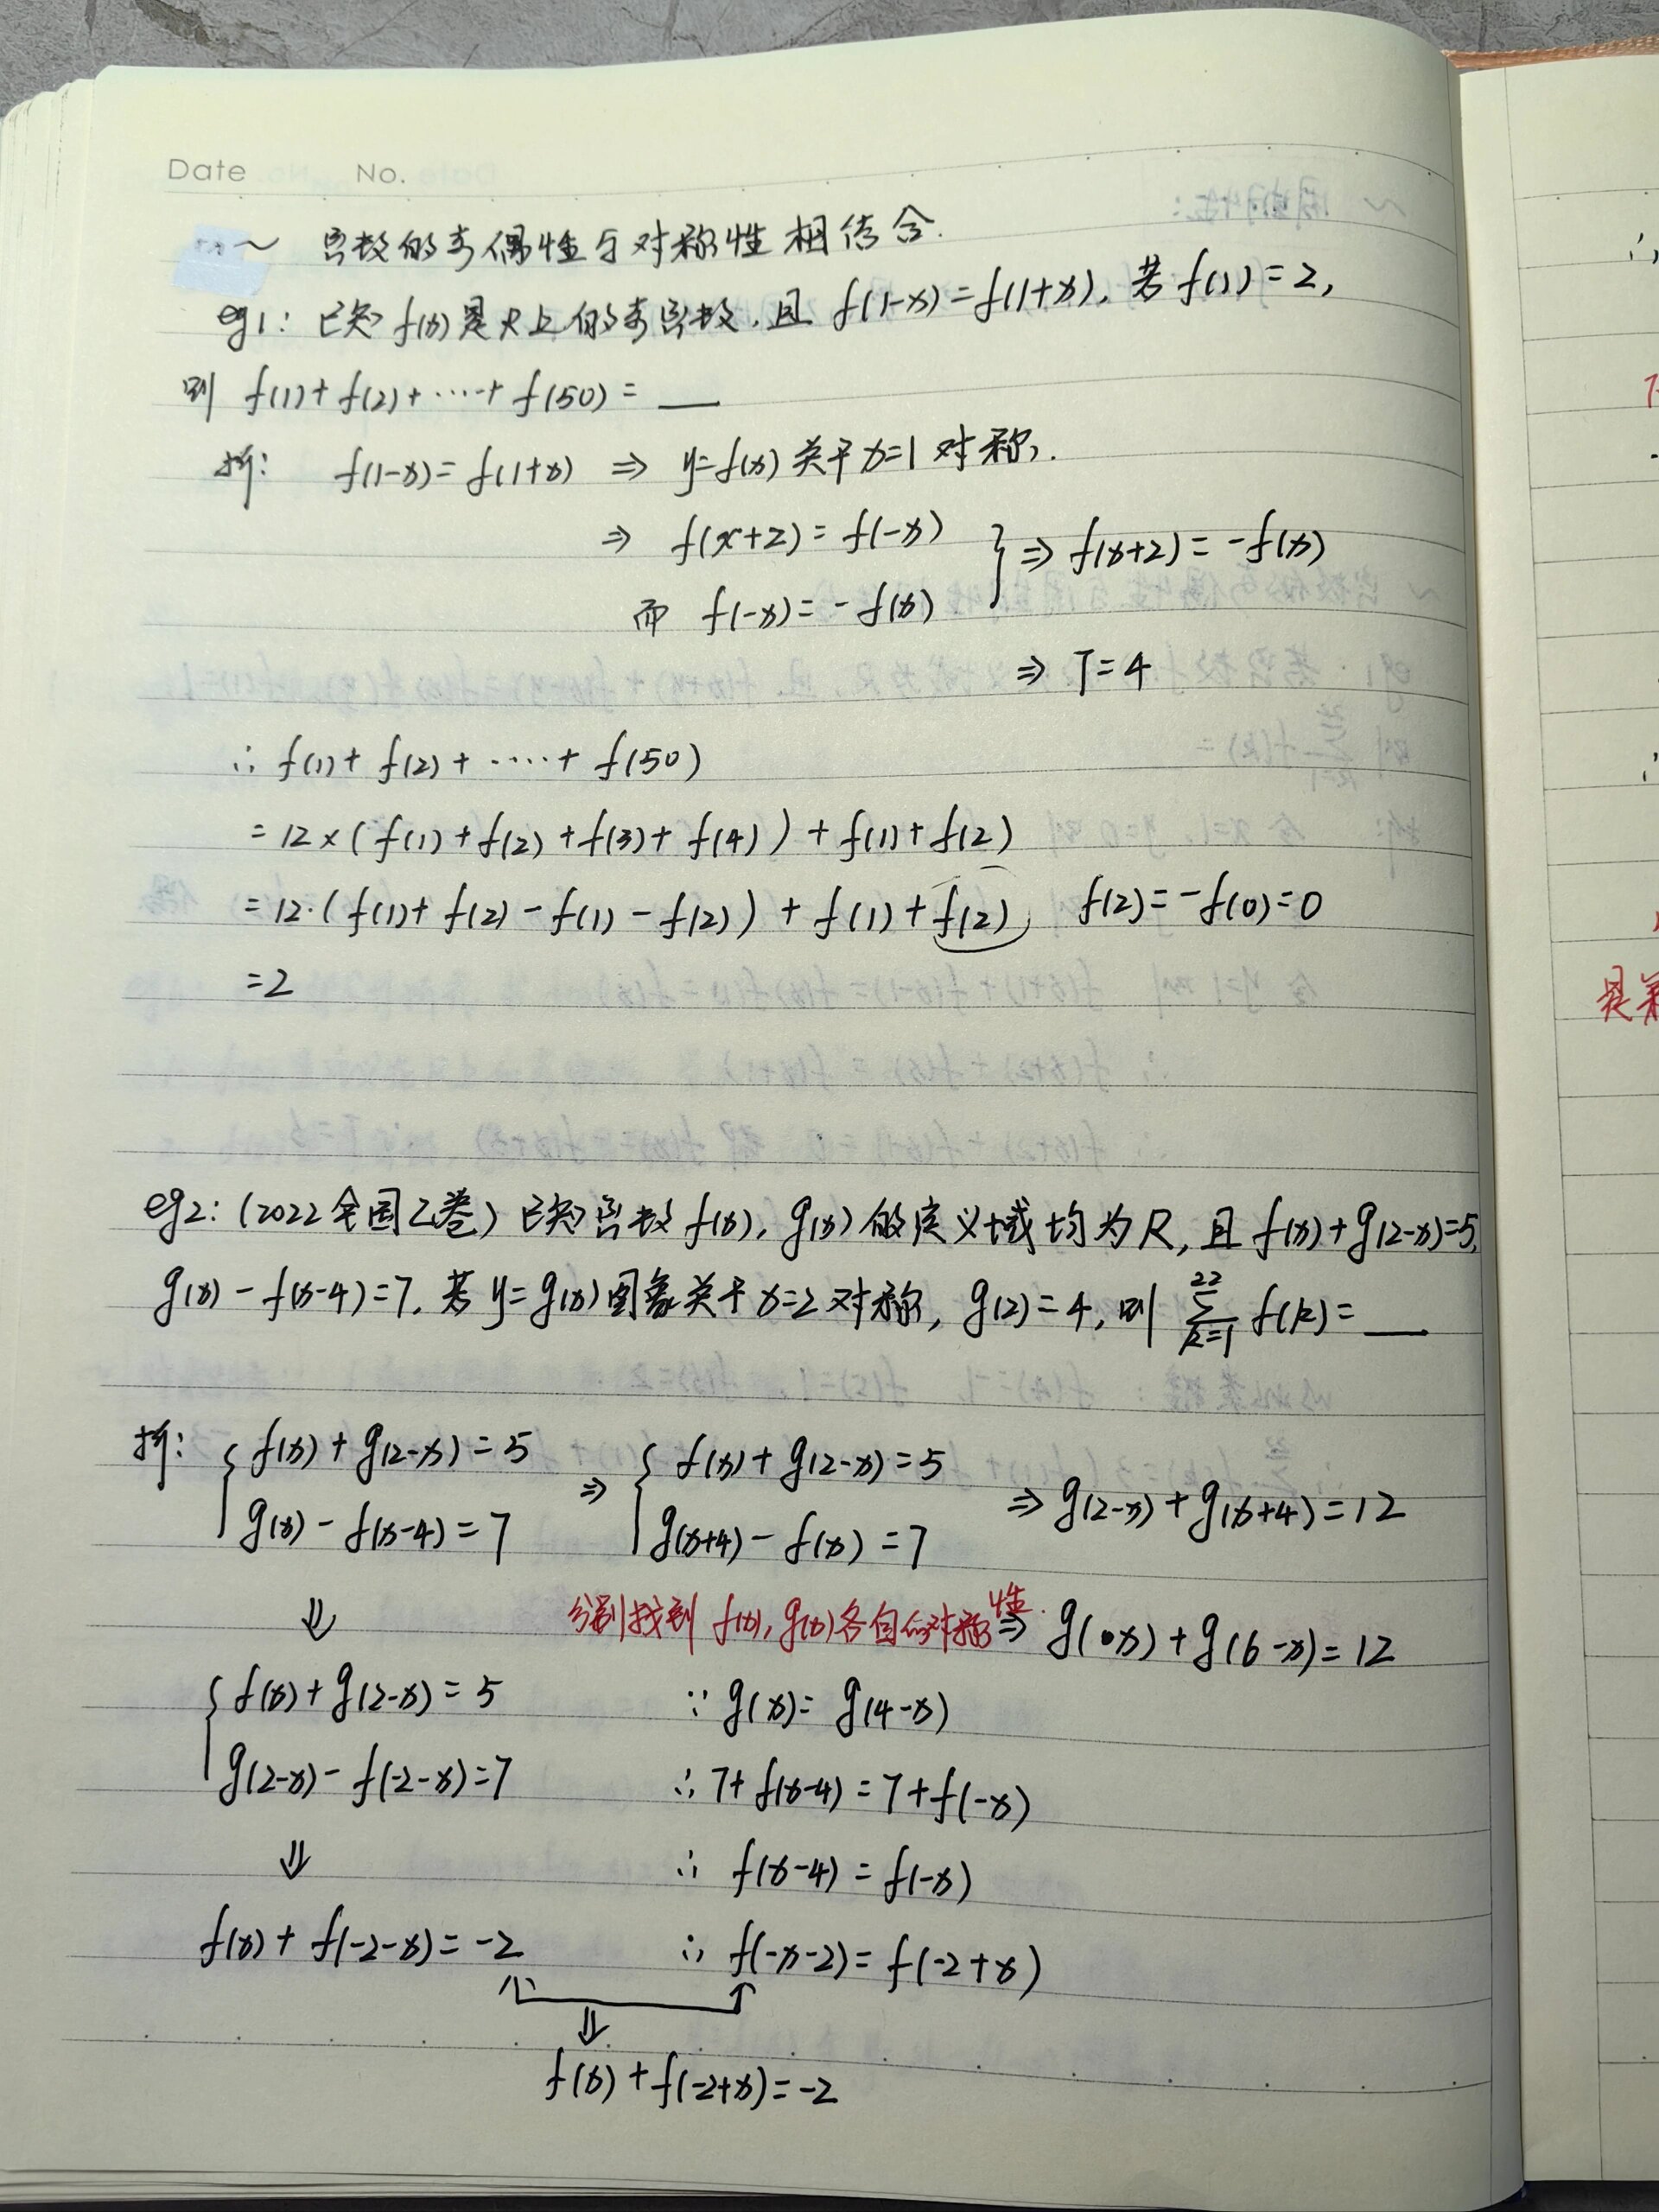 Date No.
~ 函数的奇偶性与对称性相结合.
eg1: 已知 f(x) 是 R 上的奇函数, 且 f(1-x)=f(1+x), 若 f(1)=2,
则 f(1)+f(2)+⋯+f(50)= __
析: f(1-x)=f(1+x) ⇒ y=f(x) 关于 x=1 对称.
⇒ f(x+2)=f(-x)
} ⇒ f(x+2)=-f(x)
而 f(-x)=-f(x)
⇒ T=4
∴ f(1)+f(2)+⋯⋯+f(50)
=12×(f(1)+f(2)+f(3)+f(4))+f(1)+f(2)
=12·(f(1)+f(2)-f(1)-f(2))+f(1)+f(2) f(2)=-f(0)=0
=2
eg2: (2022全国乙卷) 已知函数 f(x), g(x) 的定义域均为 R, 且 f(x)+g(2-x)=5,
g(x)-f(x-4)=7. 若 y=g(x) 图象关于 x=2 对称, g(2)=4, 则 ∑_{k=1}^{22} f(k)= __
析: { f(x)+g(2-x)=5 ⇒ { f(x)+g(2-x)=5 ⇒ g(2-x)+g(x+4)=12
g(x)-f(x-4)=7 g(x+4)-f(x)=7
⇓ 分别找到 f(x), g(x) 各自的对称性. ⇒ g(x)+g(6-x)=12
{ f(x)+g(2-x)=5 ∵ g(x)=g(4-x)
g(2-x)-f(-2-x)=7 ∴ 7+f(x-4)=7+f(-x)
⇓ ∴ f(x-4)=f(-x)
f(x)+f(-2-x)=-2 ∴ f(-x-2)=f(-2+x)
⇓
f(x)+f(-2+x)=-2